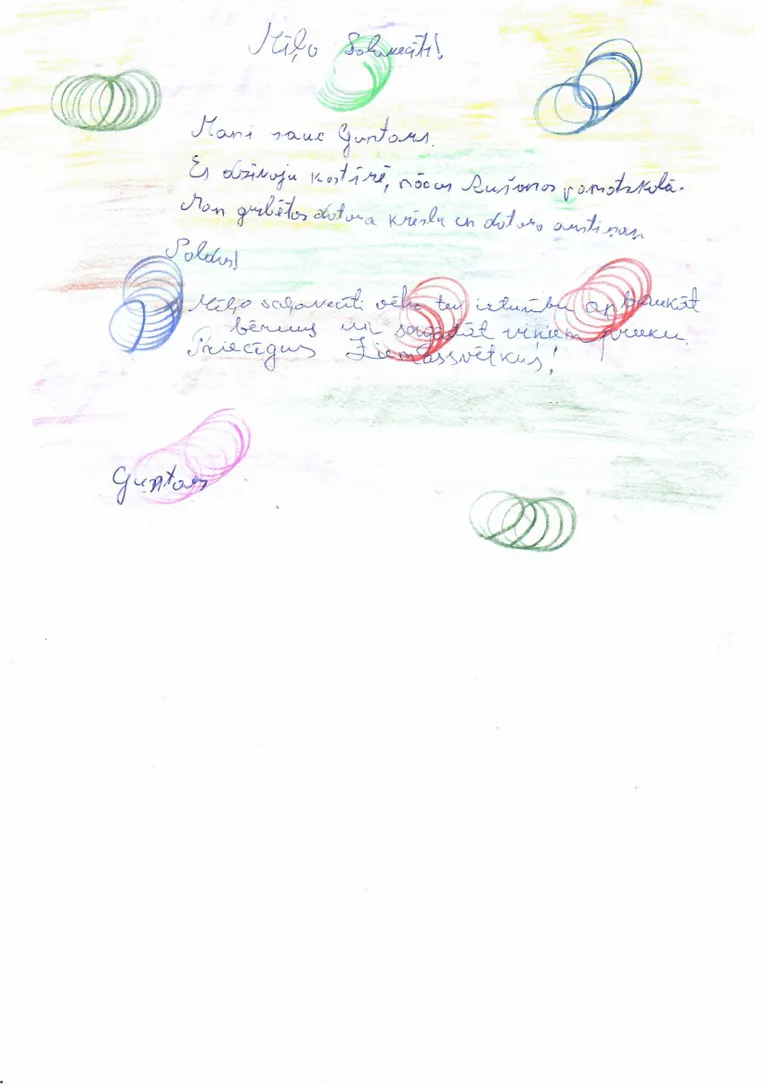 Mīļo Salavecīti!
Mani sauc Guntars.
Es dzīvoju Kastīrē, mācos Rušonas pamatskolā.
Man gribētos datora krēslu un datora austiņas.
Paldies!
Mīļo salavecīti vēlu tev izturību apbraukāt
bērnus un sagādāt viņiem prieku.
Priecīgus Ziemassvētkus!
Guntars